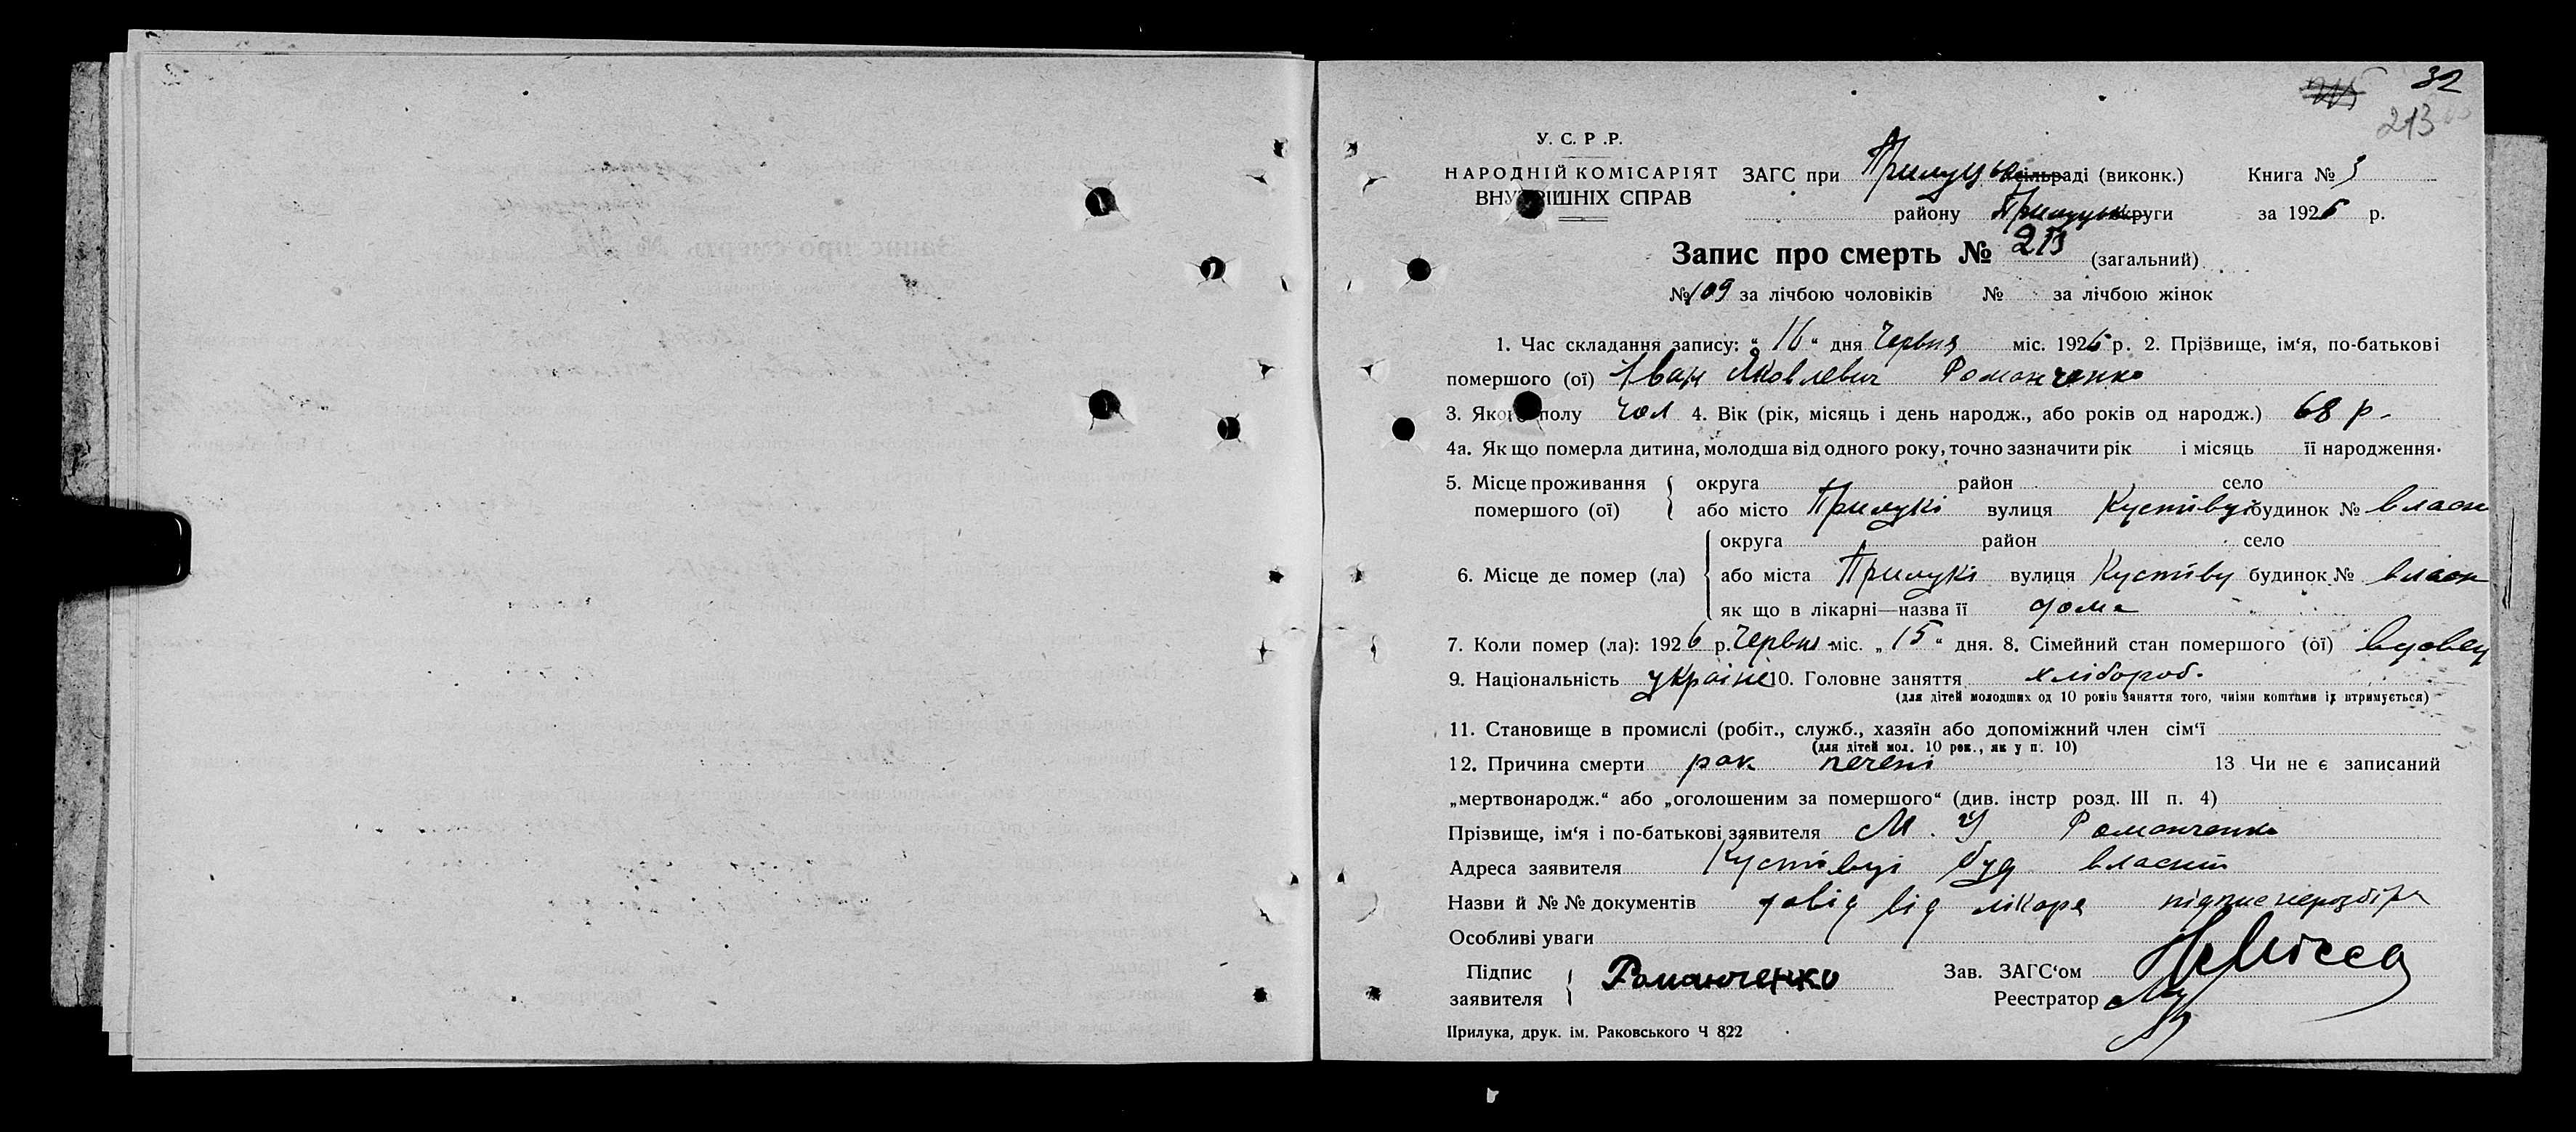 32
213
У. С. Р .Р.
НАРОДНІЙ КОМІСАРІЯТ ЗАГС при Прилуцьк сільраді (виконк.) Книга № 3
ВНУТРІШНІХ СПРАВ району Прилуцьк округи за 1926 р.
Запис про смерть № 213 (загальний)
№ 109 за лічбою чоловіків № за лічбою жінок
1. Час складання запису: “ 16 “ дня Червня міс. 1926 р. 2. Прізвище, ім‘я, по-батькові
помершого (ої) Іван Яковлевич Романченко
3. Якого полу чол 4. Вік (рік, місяць і день народж., або років од народж.) 68 р.
4а. Як що померла дитина, молодша від одного року, точно зазначити рік і місяць її народження.
5. Місце проживання округа район село
помершого (ої) або місто Прилукі вулиця Кустівці будинок № власн
округа район село
6. Місце де помер (ла) або міста Прилукі вулиця Кустівц будинок № власн
як що в лікарні—назва її дома
7. Коли помер (ла): 1926 р. Червня міс. „ 15 “ дня. 8. Сімейний стан помершого (ої) вдовец
9. Національність україне 10. Головне заняття хлібороб.
(для дітей молодших од 10 років заняття того, чиїми коштами їх втримується)
11. Становище в промислі (робіт., служб., хазяїн або допоміжний член сім‘ї
(для дітей мол. 10 рок., як у п. 10)
12. Причина смерти рак печені 13 Чи не є записаний
„мертвонародж.“ або „оголошеним за помершого“ (див. інстр розд. III п. 4)
Прізвище, ім‘я і по-батькові заявителя М. У Романченко
Адреса заявителя Кустівці буд власний
Назви й № № документів довід від лікаря підпис нерозбір
Особливі уваги
Підпис Романченко Зав. ЗАГС‘ом
заявителя Реестратор
Прилука, друк. ім. Раковського Ч 822